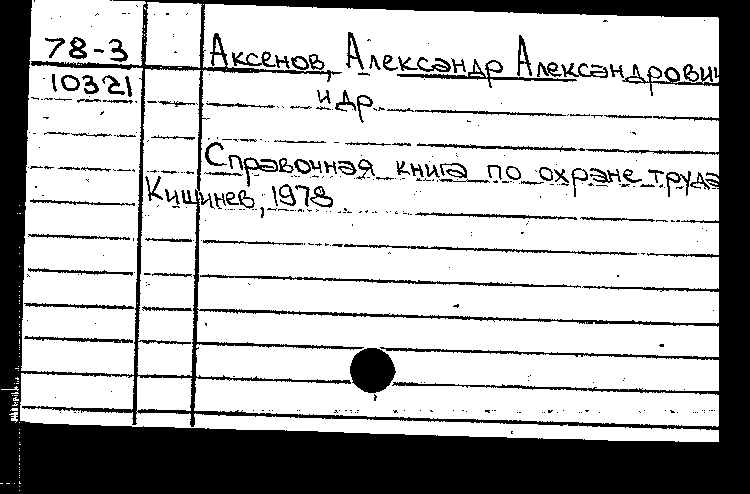 78-3 Аксенов, Александр Александрович
10321 и др.
Справочная книга по охране труда
Кишинев, 1978